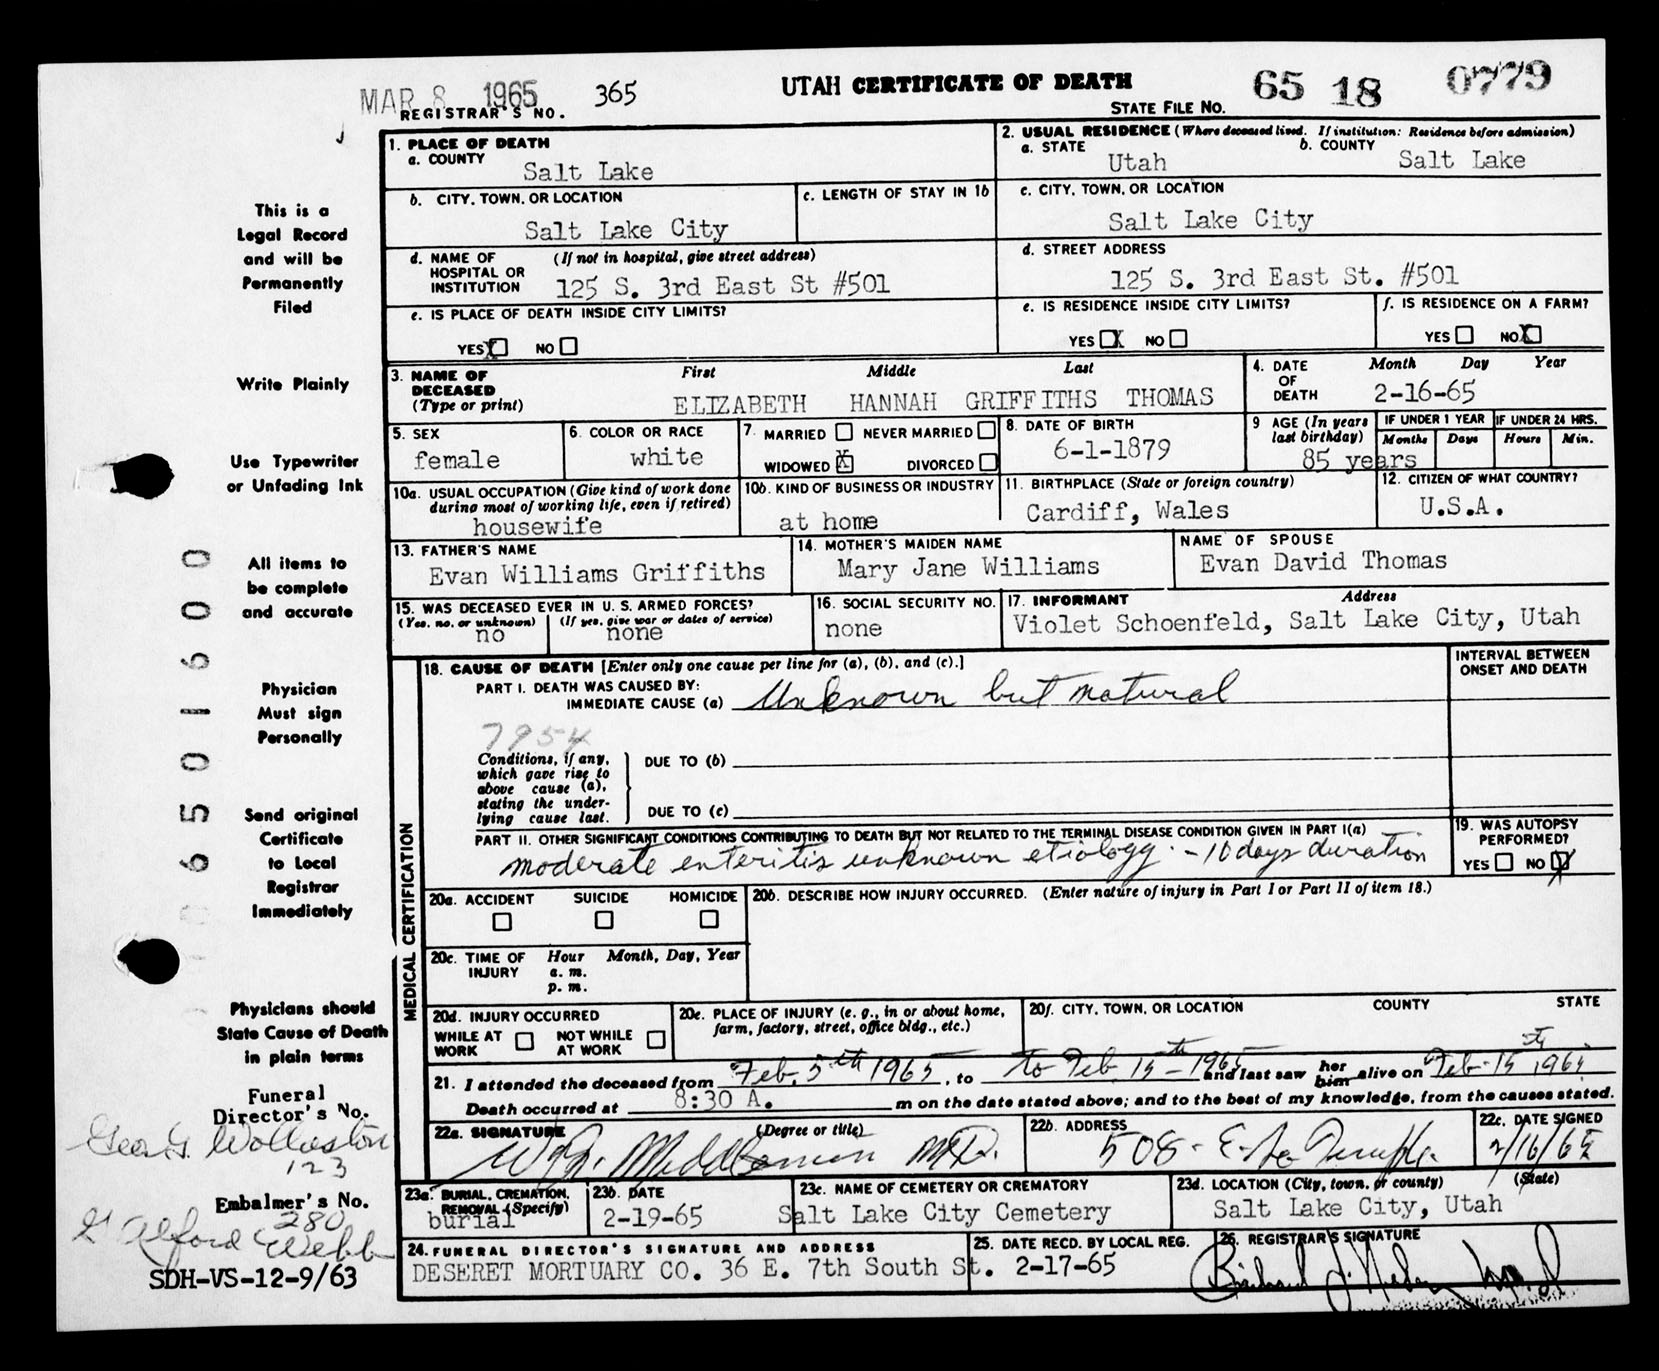 MAR 8 1965 365 UTAH CERTIFICATE OF DEATH 65 18 0779
REGISTRAR'S NO. STATE FILE NO.
1. PLACE OF DEATH
a. COUNTY
Salt Lake
2. USUAL RESIDENCE (Where deceased lived. If institution: Residence before admission)
a. STATE b. COUNTY
Utah Salt Lake
b. CITY, TOWN, OR LOCATION
Salt Lake City
c. LENGTH OF STAY IN 1b
c. CITY, TOWN, OR LOCATION
Salt Lake City
d. NAME OF HOSPITAL OR INSTITUTION (If not in hospital, give street address)
125 S. 3rd East St #501
d. STREET ADDRESS
125 S. 3rd East St. #501
e. IS PLACE OF DEATH INSIDE CITY LIMITS?
YES X NO
e. IS RESIDENCE INSIDE CITY LIMITS?
YES X NO
f. IS RESIDENCE ON A FARM?
YES NO X
3. NAME OF DECEASED (Type or print) First Middle Last
ELIZABETH HANNAH GRIFFITHS THOMAS
4. DATE OF DEATH Month Day Year
2-16-65
5. SEX
female
6. COLOR OR RACE
white
7. MARRIED NEVER MARRIED
WIDOWED X DIVORCED
8. DATE OF BIRTH
6-1-1879
9 AGE (In years last birthday)
85 years
IF UNDER 1 YEAR IF UNDER 24 HRS.
Months Days Hours Min.
10a. USUAL OCCUPATION (Give kind of work done during most of working life, even if retired)
housewife
10b. KIND OF BUSINESS OR INDUSTRY
at home
11. BIRTHPLACE (State or foreign country)
Cardiff, Wales
12. CITIZEN OF WHAT COUNTRY?
U.S.A.
13. FATHER'S NAME
Evan Williams Griffiths
14. MOTHER'S MAIDEN NAME
Mary Jane Williams
NAME OF SPOUSE
Evan David Thomas
15. WAS DECEASED EVER IN U. S. ARMED FORCES?
(Yes, no, or unknown) (If yes, give war or dates of service)
no none
16. SOCIAL SECURITY NO.
none
17. INFORMANT Address
Violet Schoenfeld, Salt Lake City, Utah
MEDICAL CERTIFICATION
18. CAUSE OF DEATH [Enter only one cause per line for (a), (b), and (c).]
INTERVAL BETWEEN ONSET AND DEATH
PART I. DEATH WAS CAUSED BY:
IMMEDIATE CAUSE (a) Unknown but natural
7954
Conditions, if any, which gave rise to above cause (a), stating the underlying cause last.
DUE TO (b)
DUE TO (c)
PART II. OTHER SIGNIFICANT CONDITIONS CONTRIBUTING TO DEATH BUT NOT RELATED TO THE TERMINAL DISEASE CONDITION GIVEN IN PART I(a)
moderate enteritis unknown etiology - 10 days duration
19. WAS AUTOPSY PERFORMED?
YES NO X
20a. ACCIDENT SUICIDE HOMICIDE
20b. DESCRIBE HOW INJURY OCCURRED. (Enter nature of injury in Part I or Part II of item 18.)
20c. TIME OF INJURY Hour Month, Day, Year
a. m.
p. m.
20d. INJURY OCCURRED
WHILE AT WORK NOT WHILE AT WORK
20e. PLACE OF INJURY (e. g., in or about home, farm, factory, street, office bldg., etc.)
20f. CITY, TOWN, OR LOCATION COUNTY STATE
21. I attended the deceased from Feb. 5th 1965, to to Feb 15th 1965 and last saw her him alive on Feb. 15th 1965
Death occurred at 8:30 A. m on the date stated above; and to the best of my knowledge, from the causes stated.
22a. SIGNATURE (Degree or title)
M.D.
22b. ADDRESS
508 - E. So Temple.
22c. DATE SIGNED
2/16/65
23a. BURIAL, CREMATION, REMOVAL (Specify)
burial
23b. DATE
2-19-65
23c. NAME OF CEMETERY OR CREMATORY
Salt Lake City Cemetery
23d. LOCATION (City, town, or county) (State)
Salt Lake City, Utah
24. FUNERAL DIRECTOR'S SIGNATURE AND ADDRESS
DESERET MORTUARY CO. 36 E. 7th South St.
25. DATE RECD. BY LOCAL REG.
2-17-65
26. REGISTRAR'S SIGNATURE
This is a
Legal Record
and will be
Permanently
Filed
Write Plainly
Use Typewriter
or Unfading Ink
All items to
be complete
and accurate
Physician
Must sign
Personally
Send original
Certificate
to Local
Registrar
Immediately
Physicians should
State Cause of Death
in plain terms
Funeral
Director's No.
Geo. G. Wollaston
123
Embalmer's No.
280
G Alford Webb
SDH-VS-12-9/63